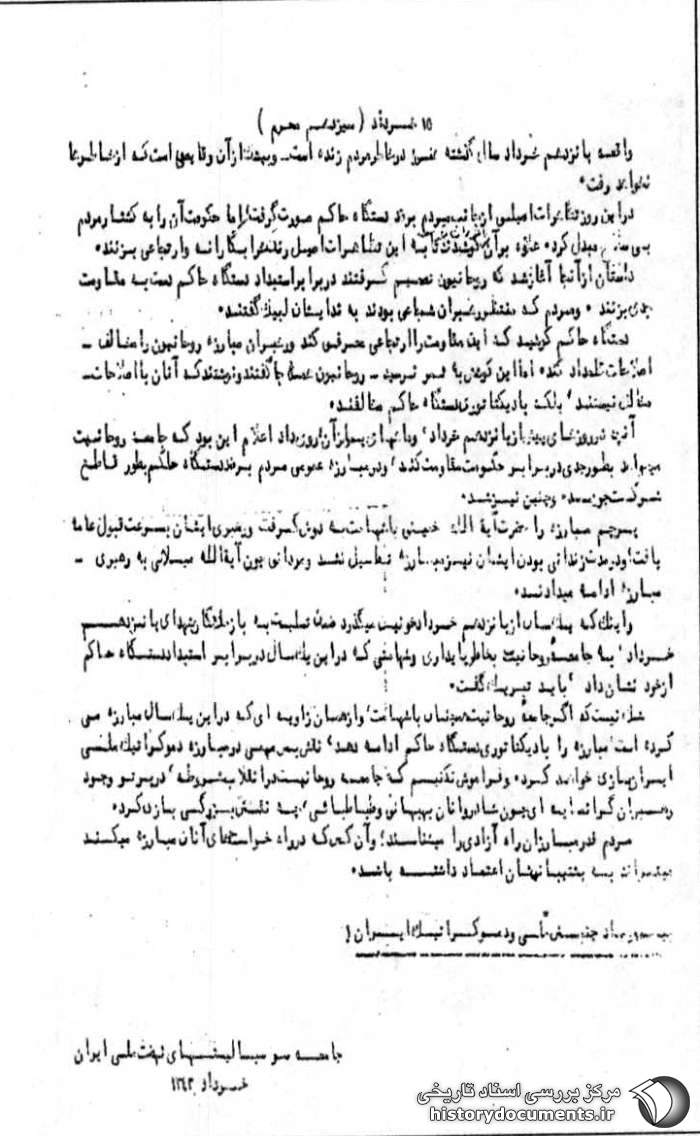 ۱۵ خرداد (سیزدهم محرم)
واقعه پانزدهم خرداد سال گذشته هنوز در خاطر مردم زنده است. و بهت از آن وقایعی است که از خاطرها
نخواهد رفت.
در این روز تظاهرات اصیلی از جانب مردم برضد دستگاه حاکم صورت گرفت، اما حکومت آن را به کشتار مردم
بی مبدل کرد. علاوه بر آن کوشیدند که به این تظاهرات اصیل رنگ خرابکارانه و ارتجاعی بزنند.
داستان از آنجا آغاز شد که روحانیون تصمیم گرفتند در برابر استبداد دستگاه حاکم دست به مقاومت
جدی بزنند. و مردم که منتظر رهبران شجاعی بودند به ندایشان لبیک گفتند.
دستگاه حاکم کوشید که این مقاومت را ارتجاعی معرفی کند و رهبران مبارزه روحانیون را مخالف -
اصلاحات قلمداد کند. اما این کوشش به ثمر نرسید - روحانیون همه جا گفتند و نوشتند که آنان با اصلاحات-
مخالف نیستند، بلکه با دیکتاتوری دستگاه حاکم مخالفند.
آنچه در روزهای پیش از پانزدهم خرداد، و ماههای پس از آن روی داد اعلام این بود که جامعه روحانیت
میخواهد بطور جدی در برابر حکومت مقاومت کند، و در مبارزه عمومی مردم برضد دستگاه حاکم بطور قاطع
شرکت جوید. و چنین نیز شد.
پرچم مبارزه را حضرت آیة الله خمینی با شهامت به دوش گرفت و رهبری ایشان بسرعت قبول عامه
یافت، و در مدت زندانی بودن ایشان نیز مبارزه تعطیل نشد و مردانی چون آیةالله میلانی به رهبری -
مبارزه ادامه میدادند.
و اینک که یکسال از پانزدهم خرداد خونین میگذرد ضمن تسلیت به بازماندگان شهدای پانزدهم
خرداد، به جامعه روحانیت بخاطر پایداری و شهامتی که در این یکسال در برابر استبداد دستگاه حاکم
از خود نشان داد، باید تبریک گفت.
شک نیست که اگر جامعه روحانیت همچنان با شهامت، و از همان زاویه ای که در این یکسال مبارزه می
کرده است، مبارزه را با دیکتاتوری دستگاه حاکم ادامه دهد، نقش بس مهمی در مبارزه دموکراتیک ملی
ایران بازی خواهد کرد. و فراموش نکنیم که جامعه روحانیت در انقلاب مشروطه، در پرتو وجود
رهبران گرانمایه ای چون شادروانان بهبهانی و طباطبائی، چه نقش بزرگی بازی کرد.
مردم قدر مبارزان راه آزادی را میشناسند، و آن کس که در راه خواستهای آنان مبارزه میکند
میتواند به پشتیبانیشان اعتماد داشته باشد.
جنبش ملی و دموکراتیک ایران
جامعه سوسیالیستهای نهضت ملی ایران
خرداد ۱۳۴۳
مرکز بررسی اسناد تاریخی
historydocuments.ir